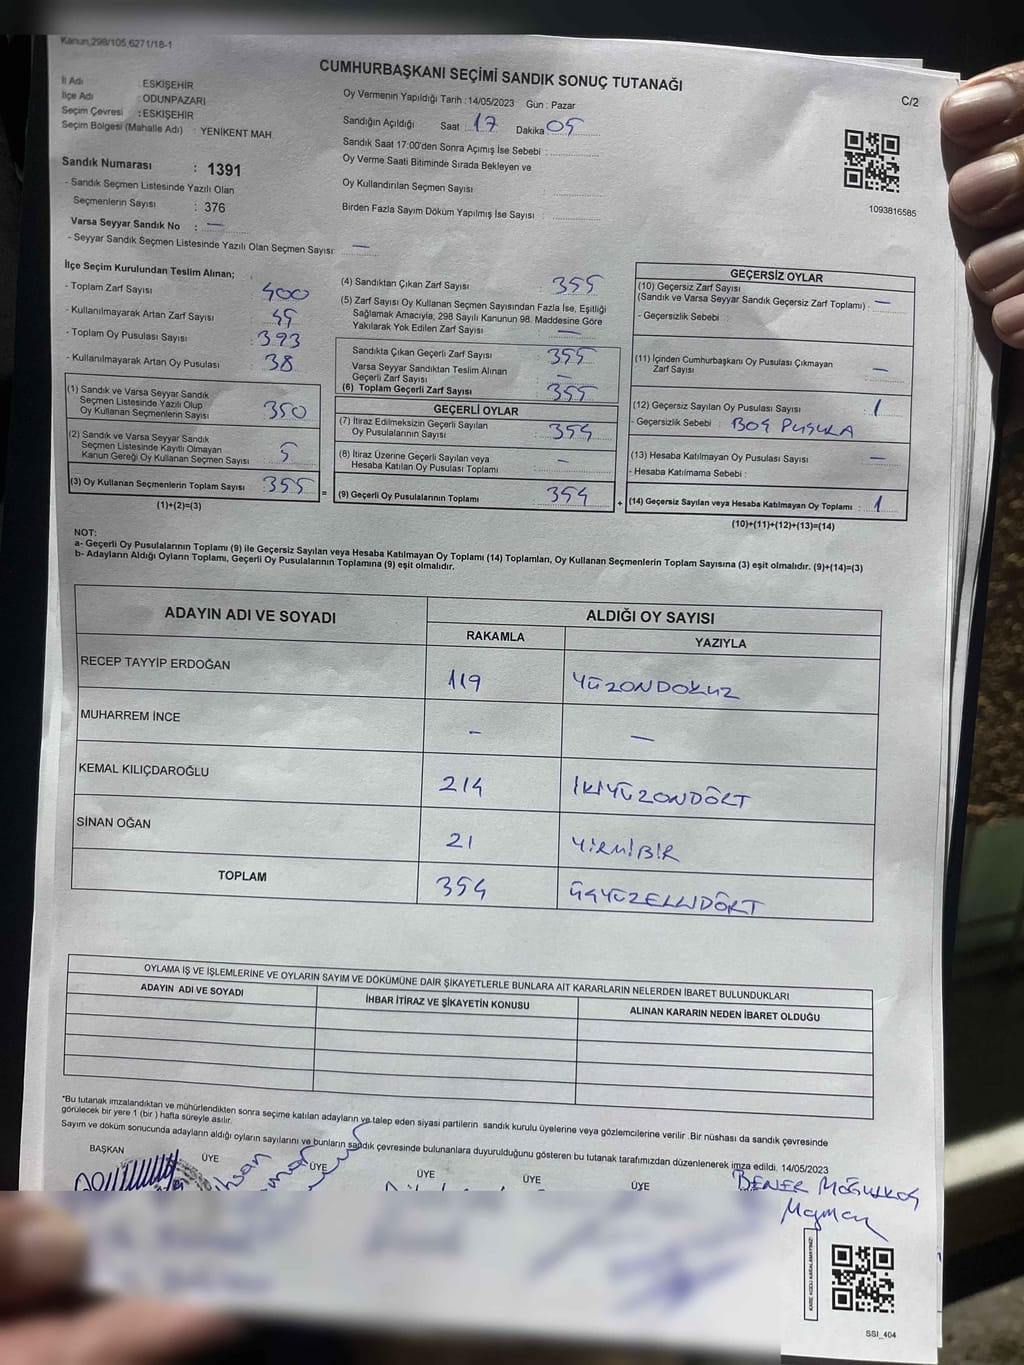 Kanun,298/105,6271/18-1
CUMHURBAŞKANI SEÇİMİ SANDIK SONUÇ TUTANAĞI
C/2
İl Adı : ESKİŞEHİR
İlçe Adı : ODUNPAZARI
Seçim Çevresi : ESKİŞEHİR
Seçim Bölgesi (Mahalle Adı) : YENİKENT MAH.
Oy Vermenin Yapıldığı Tarih : 14/05/2023 Gün : Pazar
Sandığın Açıldığı Saat : 17 Dakika 05
Sandık Saat 17:00'den Sonra Açımış İse Sebebi :
Oy Verme Saati Bitiminde Sırada Bekleyen ve
Oy Kullandırılan Seçmen Sayısı
Birden Fazla Sayım Döküm Yapılmış İse Sayısı :
1093816585
Sandık Numarası : 1391
- Sandık Seçmen Listesinde Yazılı Olan
Seçmenlerin Sayısı : 376
Varsa Seyyar Sandık No : —
- Seyyar Sandık Seçmen Listesinde Yazılı Olan Seçmen Sayısı: —
İlçe Seçim Kurulundan Teslim Alınan;
- Toplam Zarf Sayısı 400
- Kullanılmayarak Artan Zarf Sayısı : 45
- Toplam Oy Pusulası Sayısı : 393
- Kullanılmayarak Artan Oy Pusulası : 38
(1) Sandık ve Varsa Seyyar Sandık
Seçmen Listesinde Yazılı Olup
Oy Kullanan Seçmenlerin Sayısı : 350
(2) Sandık ve Varsa Seyyar Sandık
Seçmen Listesinde Kayıtlı Olmayan
Kanun Gereği Oy Kullanan Seçmen Sayısı : 5
(3) Oy Kullanan Seçmenlerin Toplam Sayısı : 355
(1)+(2)=(3)
=
(4) Sandıktan Çıkan Zarf Sayısı : 355
(5) Zarf Sayısı Oy Kullanan Seçmen Sayısından Fazla İse, Eşitliği
Sağlamak Amacıyla, 298 Sayılı Kanunun 98. Maddesine Göre
Yakılarak Yok Edilen Zarf Sayısı : —
Sandıkta Çıkan Geçerli Zarf Sayısı : 355
Varsa Seyyar Sandıktan Teslim Alınan
Geçerli Zarf Sayısı : —
(6) Toplam Geçerli Zarf Sayısı : 355
GEÇERLİ OYLAR
(7) İtiraz Edilmeksizin Geçerli Sayılan
Oy Pusulalarının Sayısı : 354
(8) İtiraz Üzerine Geçerli Sayılan veya
Hesaba Katılan Oy Pusulası Toplamı : —
(9) Geçerli Oy Pusulalarının Toplamı : 354
+
GEÇERSİZ OYLAR
(10) Geçersiz Zarf Sayısı
(Sandık ve Varsa Seyyar Sandık Geçersiz Zarf Toplamı) : —
- Geçersizlik Sebebi :
(11) İçinden Cumhurbaşkanı Oy Pusulası Çıkmayan
Zarf Sayısı : —
(12) Geçersiz Sayılan Oy Pusulası Sayısı : 1
- Geçersizlik Sebebi : BOŞ PUSULA
(13) Hesaba Katılmayan Oy Pusulası Sayısı : —
- Hesaba Katılmama Sebebi :
(14) Geçersiz Sayılan veya Hesaba Katılmayan Oy Toplamı : 1
(10)+(11)+(12)+(13)=(14)
NOT:
a- Geçerli Oy Pusulalarının Toplamı (9) ile Geçersiz Sayılan veya Hesaba Katılmayan Oy Toplamı (14) Toplamları, Oy Kullanan Seçmenlerin Toplam Sayısına (3) eşit olmalıdır. (9)+(14)=(3)
b- Adayların Aldığı Oyların Toplamı, Geçerli Oy Pusulalarının Toplamına (9) eşit olmalıdır.
ADAYIN ADI VE SOYADI ALDIĞI OY SAYISI
RAKAMLA YAZIYLA
RECEP TAYYİP ERDOĞAN 119 YÜZONDOKUZ
MUHARREM İNCE — —
KEMAL KILIÇDAROĞLU 214 İKİYÜZONDÖRT
SİNAN OĞAN 21 YİRMİBİR
TOPLAM 354 ÜÇYÜZELLİDÖRT
OYLAMA İŞ VE İŞLEMLERİNE VE OYLARIN SAYIM VE DÖKÜMÜNE DAİR ŞİKAYETLERLE BUNLARA AİT KARARLARIN NELERDEN İBARET BULUNDUKLARI
ADAYIN ADI VE SOYADI İHBAR İTİRAZ VE ŞİKAYETİN KONUSU ALINAN KARARIN NEDEN İBARET OLDUĞU
*Bu tutanak imzalandıktan ve mühürlendikten sonra seçime katılan adayların ve talep eden siyasi partilerin sandık kurulu üyelerine veya gözlemcilerine verilir .Bir nüshası da sandık çevresinde
görülecek bir yere 1 (bir ) hafta süreyle asılır.
Sayım ve döküm sonucunda adayların aldığı oyların sayılarını ve bunların sandık çevresinde bulunanlara duyurulduğunu gösteren bu tutanak tarafımızdan düzenlenerek imza edildi. 14/05/2023
BAŞKAN ÜYE ÜYE ÜYE ÜYE ÜYE
SSI_404